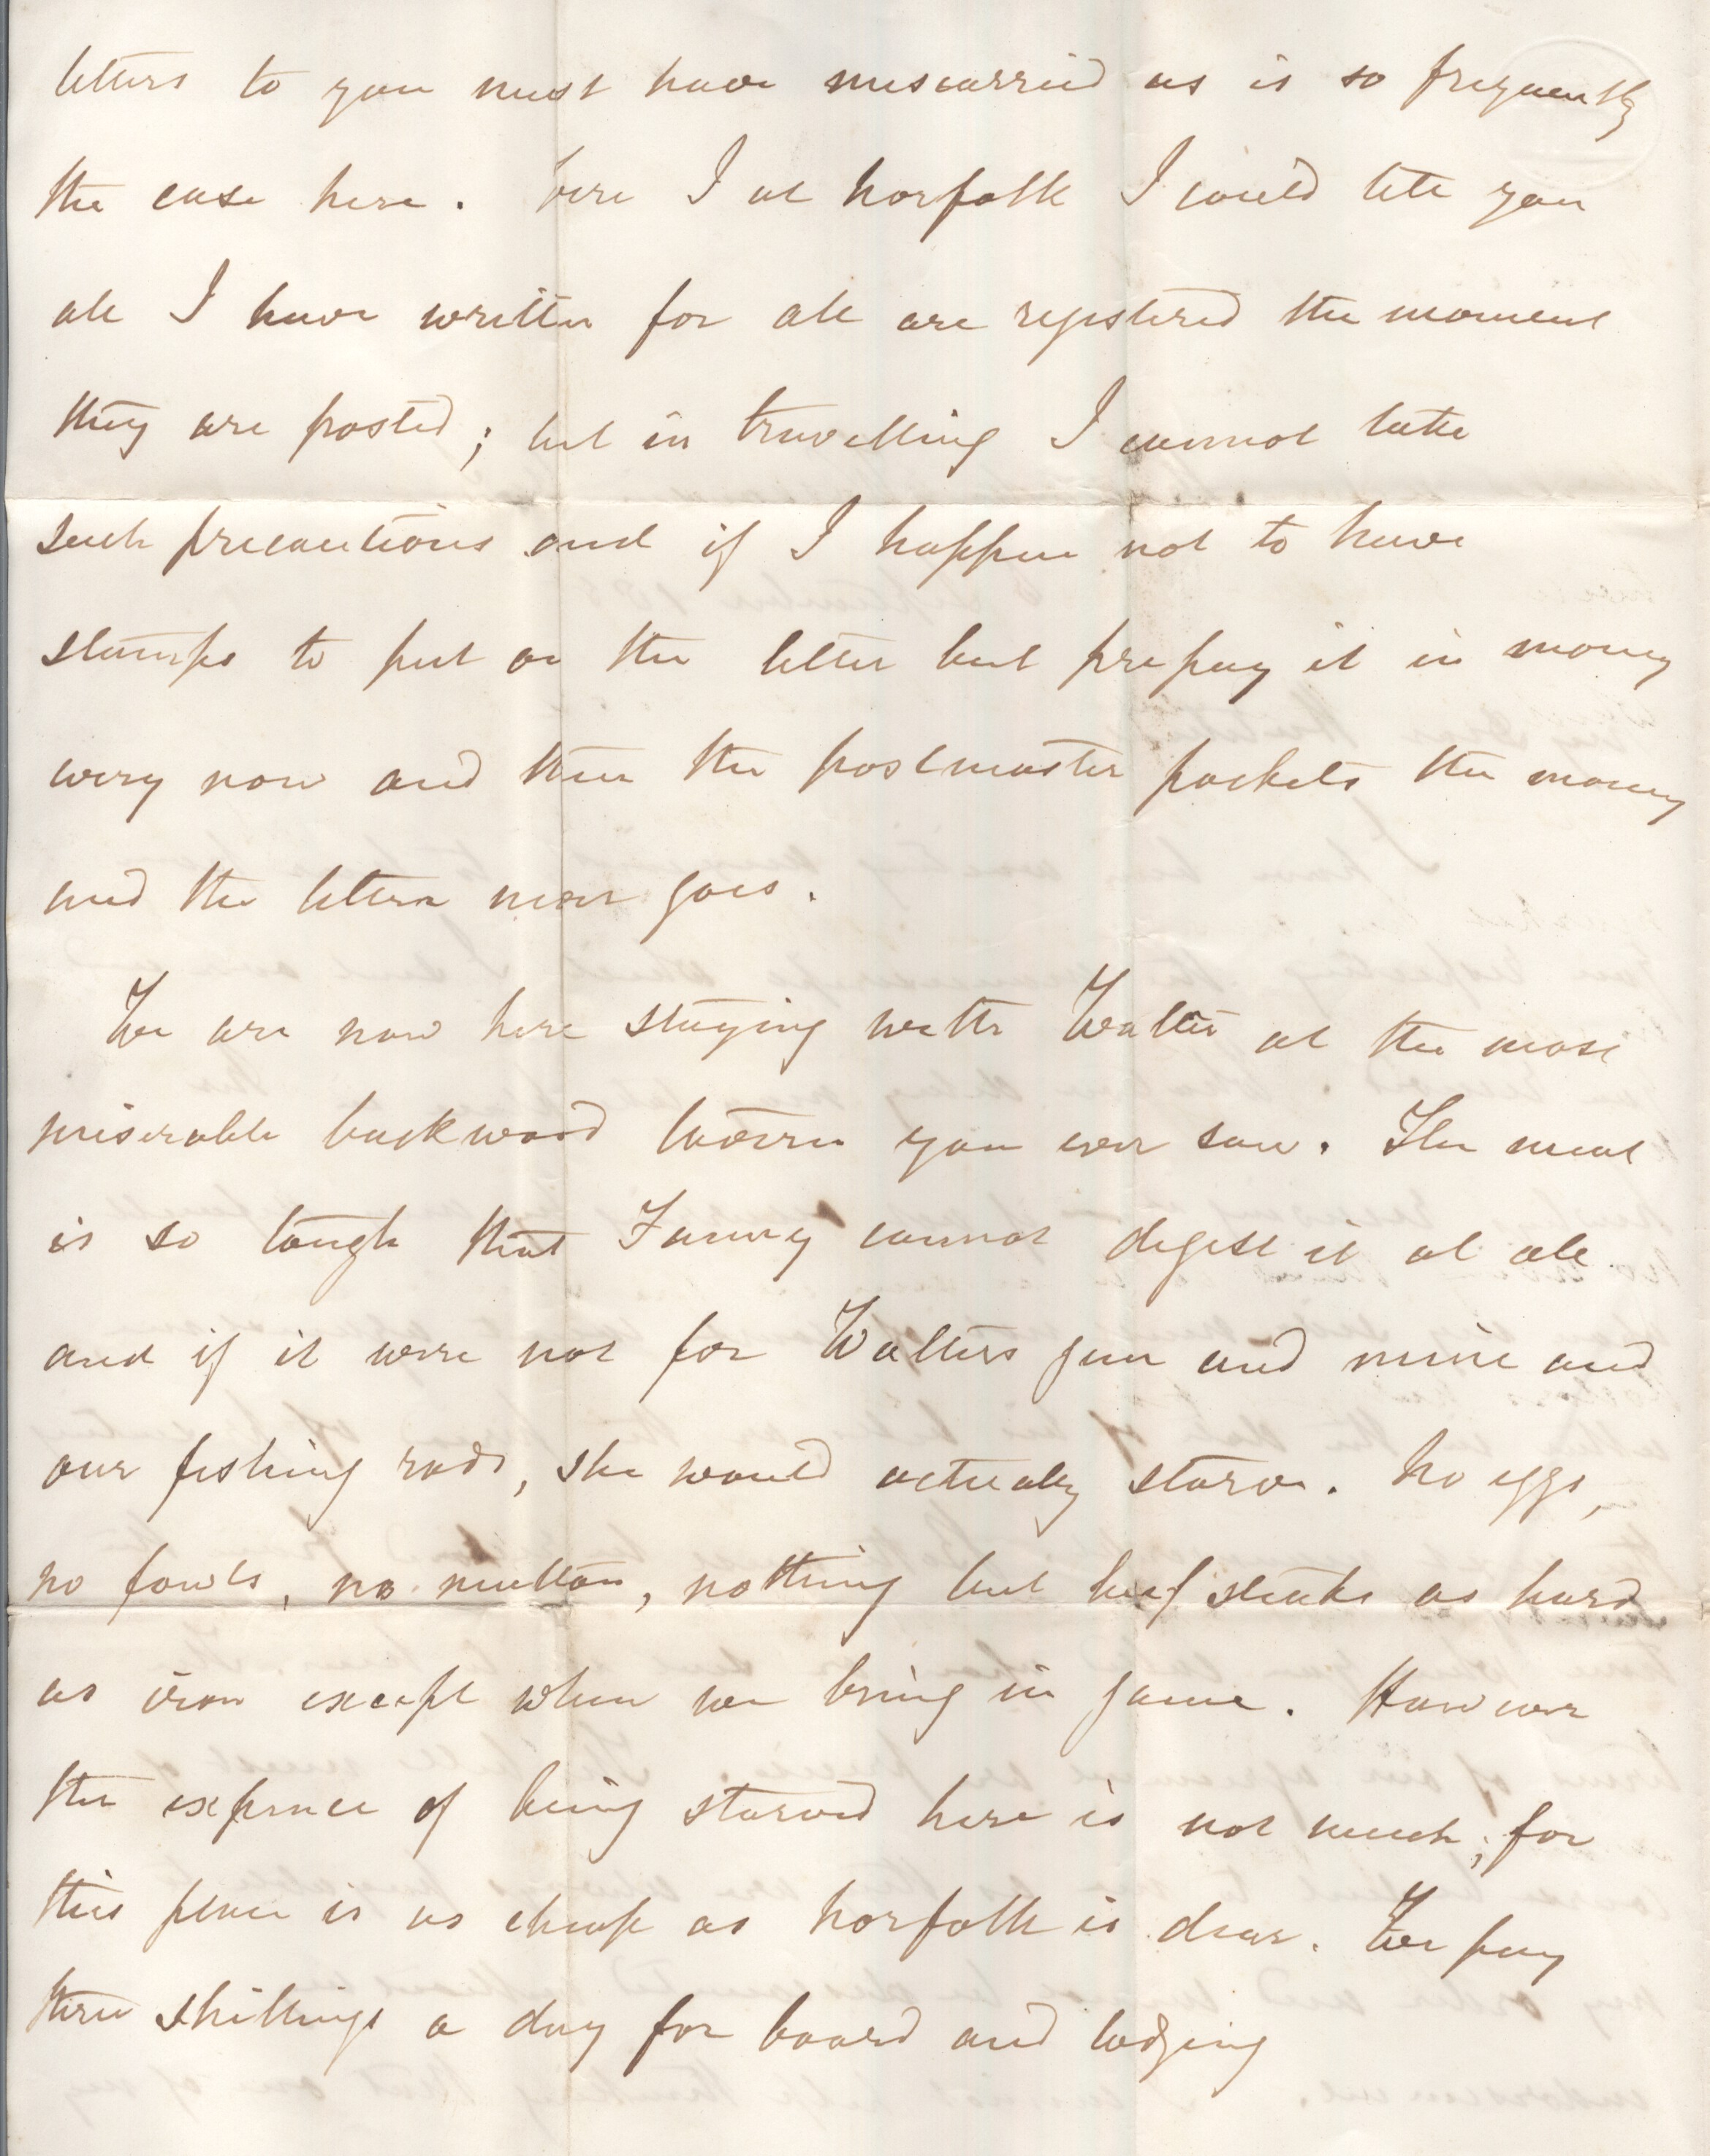 letters to you must have miscarried as is so frequently
the case here. Were I at Norfolk I could tell you
all I have written for all are registered the moment
they are posted; but in travelling I cannot take
such precautions and if I happen not to have
stamps to put on the letter but prepay it in money
every now and then the postmaster pockets the money
and the letter never goes.
We are now here staying with Walter at the most
miserable backwood tavern you ever saw. The meat
is so tough that Fanny cannot digest it at all
and if it were not for Walters gun and mine and
our fishing rods, she would actually starve. No eggs,
no fowls, no mutton, nothing but beef steaks as hard
as iron except when we bring in game. However
the expence of being starved here is not much; for
this place is as cheap as Norfolk is dear. We pay
three shillings a day for board and lodging